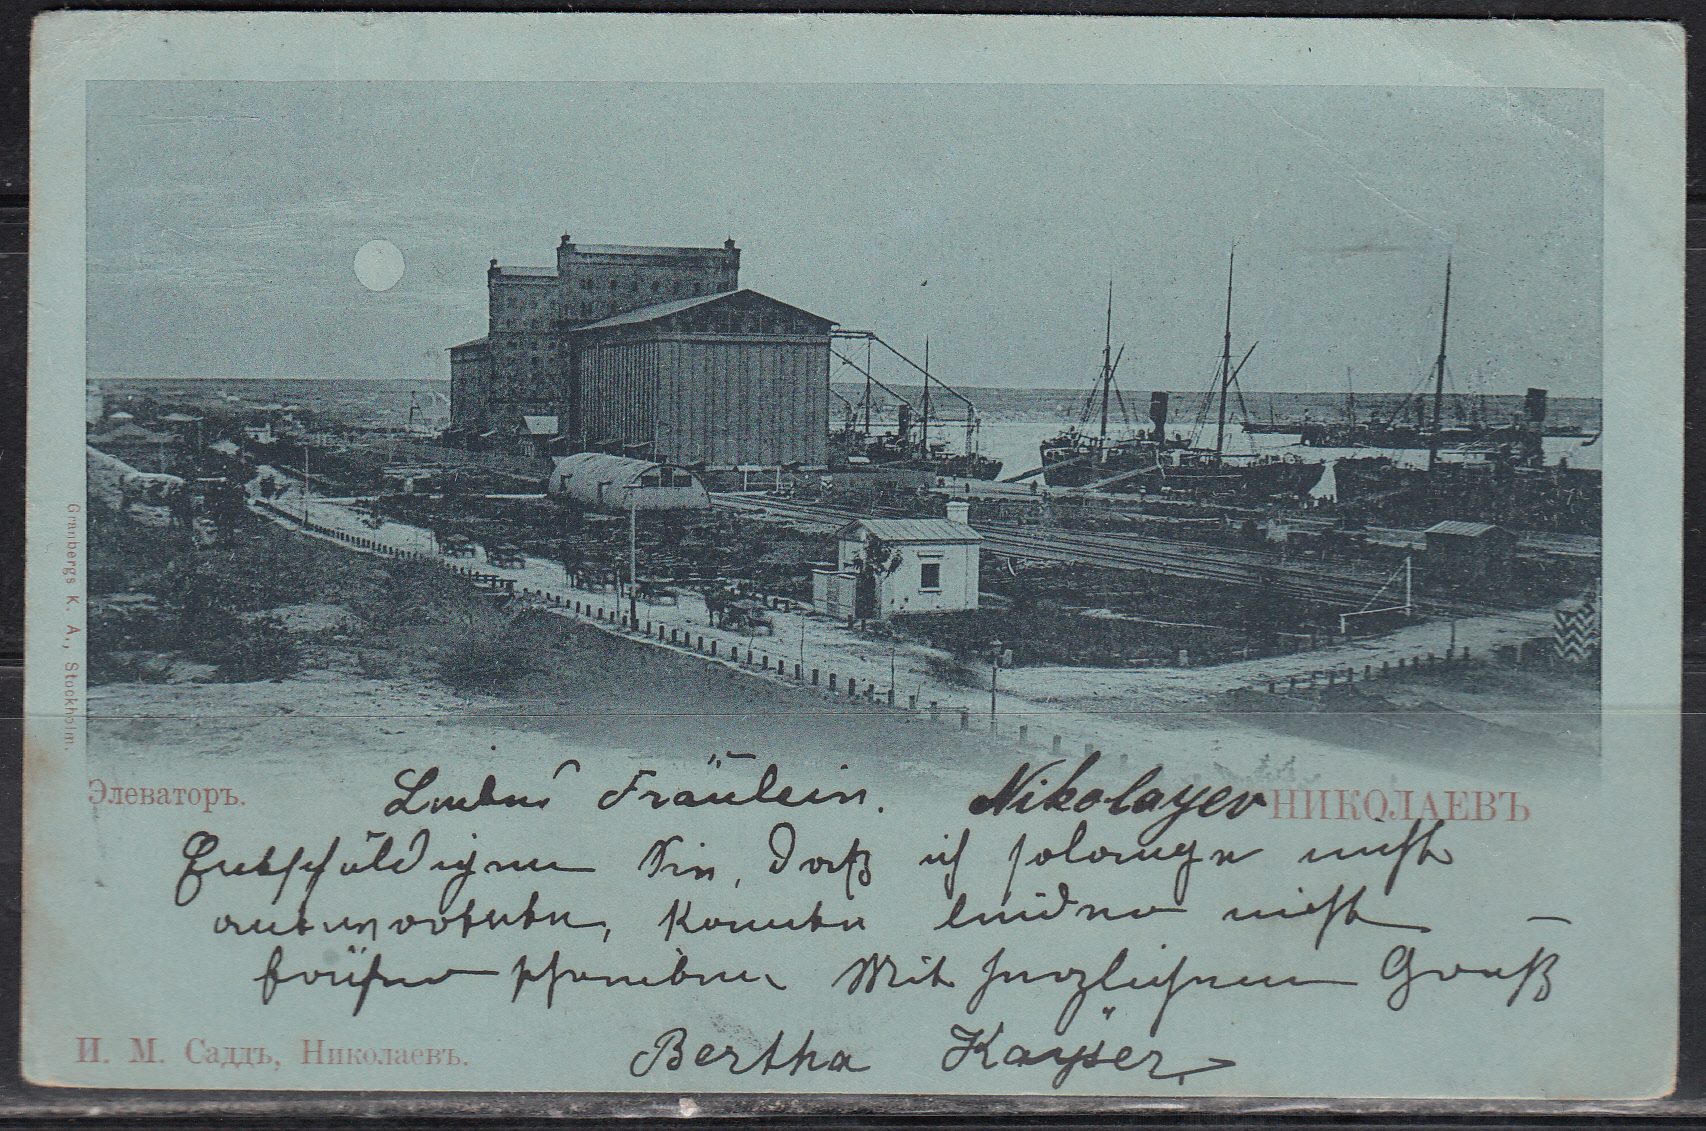 Granbergs K. A., Stockholm.
Элеваторъ.
НИКОЛАЕВЪ
Liebes Fräulein. Nikolayev
Entschuldigen Sie, daß ich solange nicht
antwortete, konnte leider nicht
früher schreiben. Mit herzlichem Gruß
Bertha Kayser
И. М. Саддъ, Николаевъ.